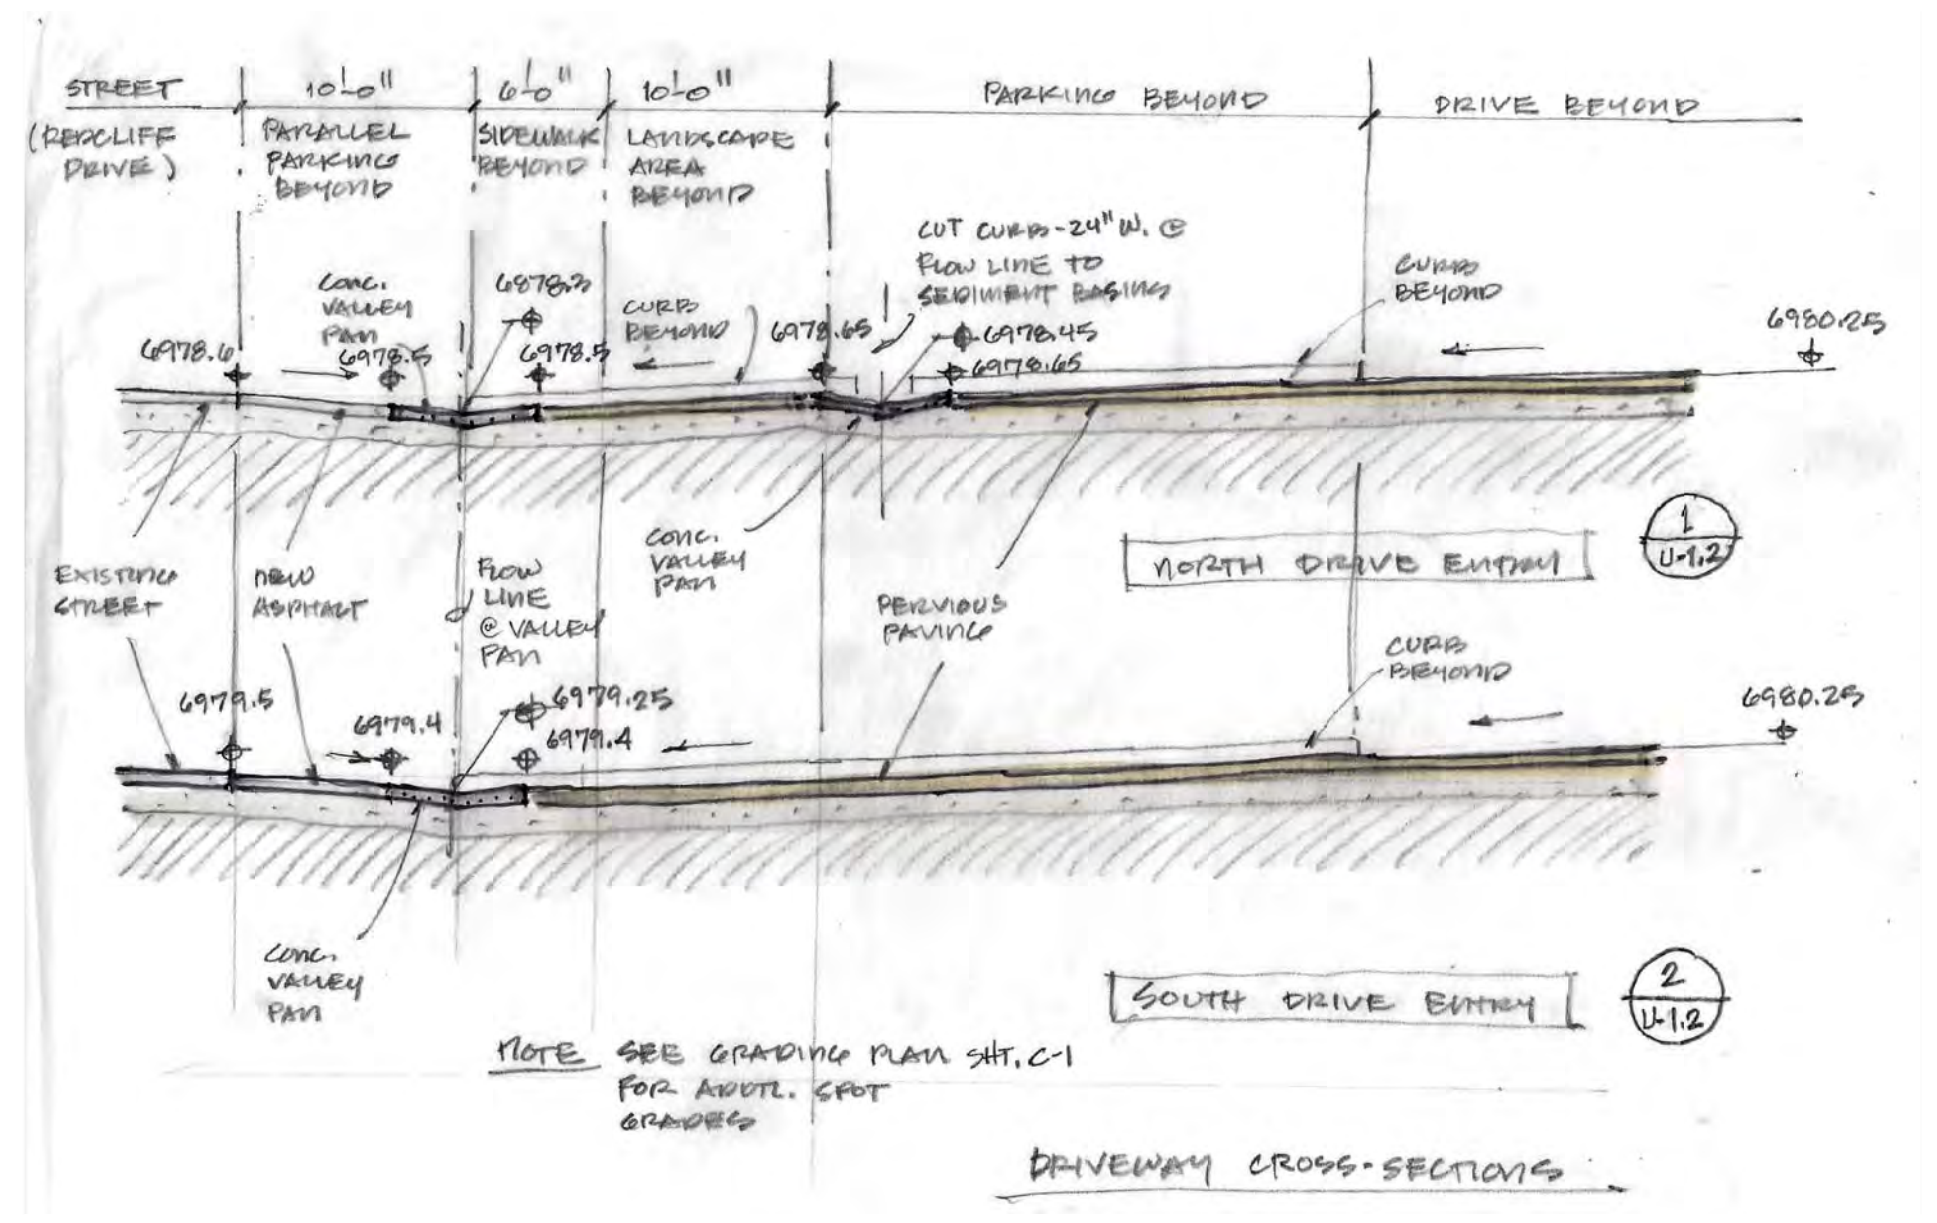 STREET
10'-0"
6'-0"
10'-0"
PARKING BEYOND
DRIVE BEYOND
(REDCLIFF
DRIVE)
PARALLEL
PARKING
BEYOND
SIDEWALK
BEYOND
LANDSCAPE
AREA
BEYOND
CUT CURB-24" W. @
FLOW LINE TO
SEDIMENT BASINS
CURB
BEYOND
CONC.
VALLEY
PAN
6878.3
CURB
BEYOND
6978.6
6978.5
6978.5
6978.65
6978.45
6978.65
6980.25
EXISTING
STREET
NEW
ASPHALT
FLOW
LINE
@ VALLEY
PAN
CONC.
VALLEY
PAN
PERVIOUS
PAVING
NORTH DRIVE ENTRY
1
U-1.2
CURB
BEYOND
6979.5
6979.4
6979.25
6979.4
6980.25
CONC.
VALLEY
PAN
SOUTH DRIVE ENTRY
2
U-1.2
NOTE SEE GRADING PLAN SHT. C-1
FOR ADDTL. SPOT
GRADES
DRIVEWAY CROSS-SECTIONS